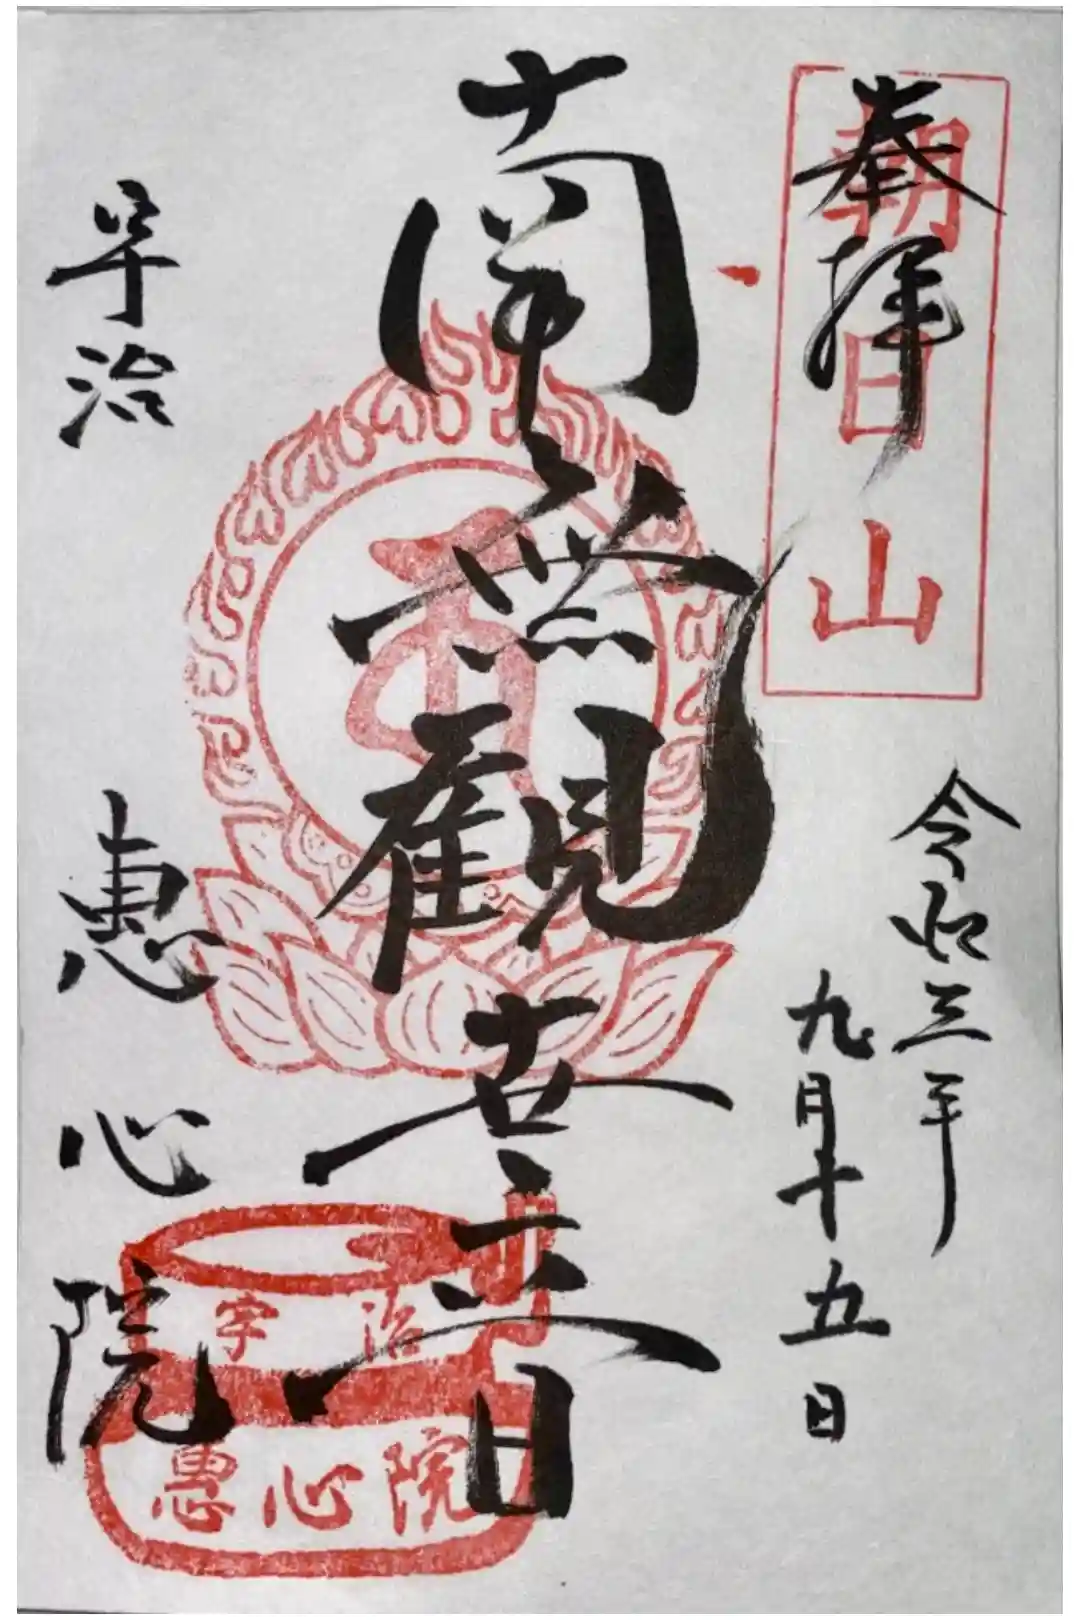 奉拝
朝日山
令和三年
九月十五日
南無觀世音
宇治
惠心院
宇治
惠心院